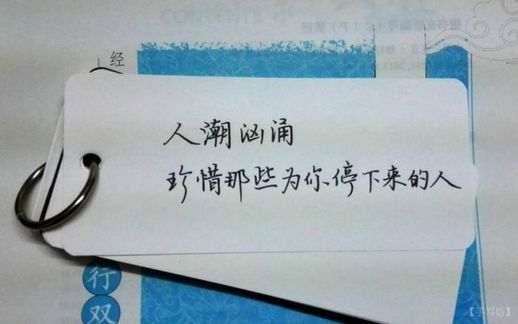 CONTENTS
经
人潮汹涌
珍惜那些为你停下来的人
行
双
【手写坊】